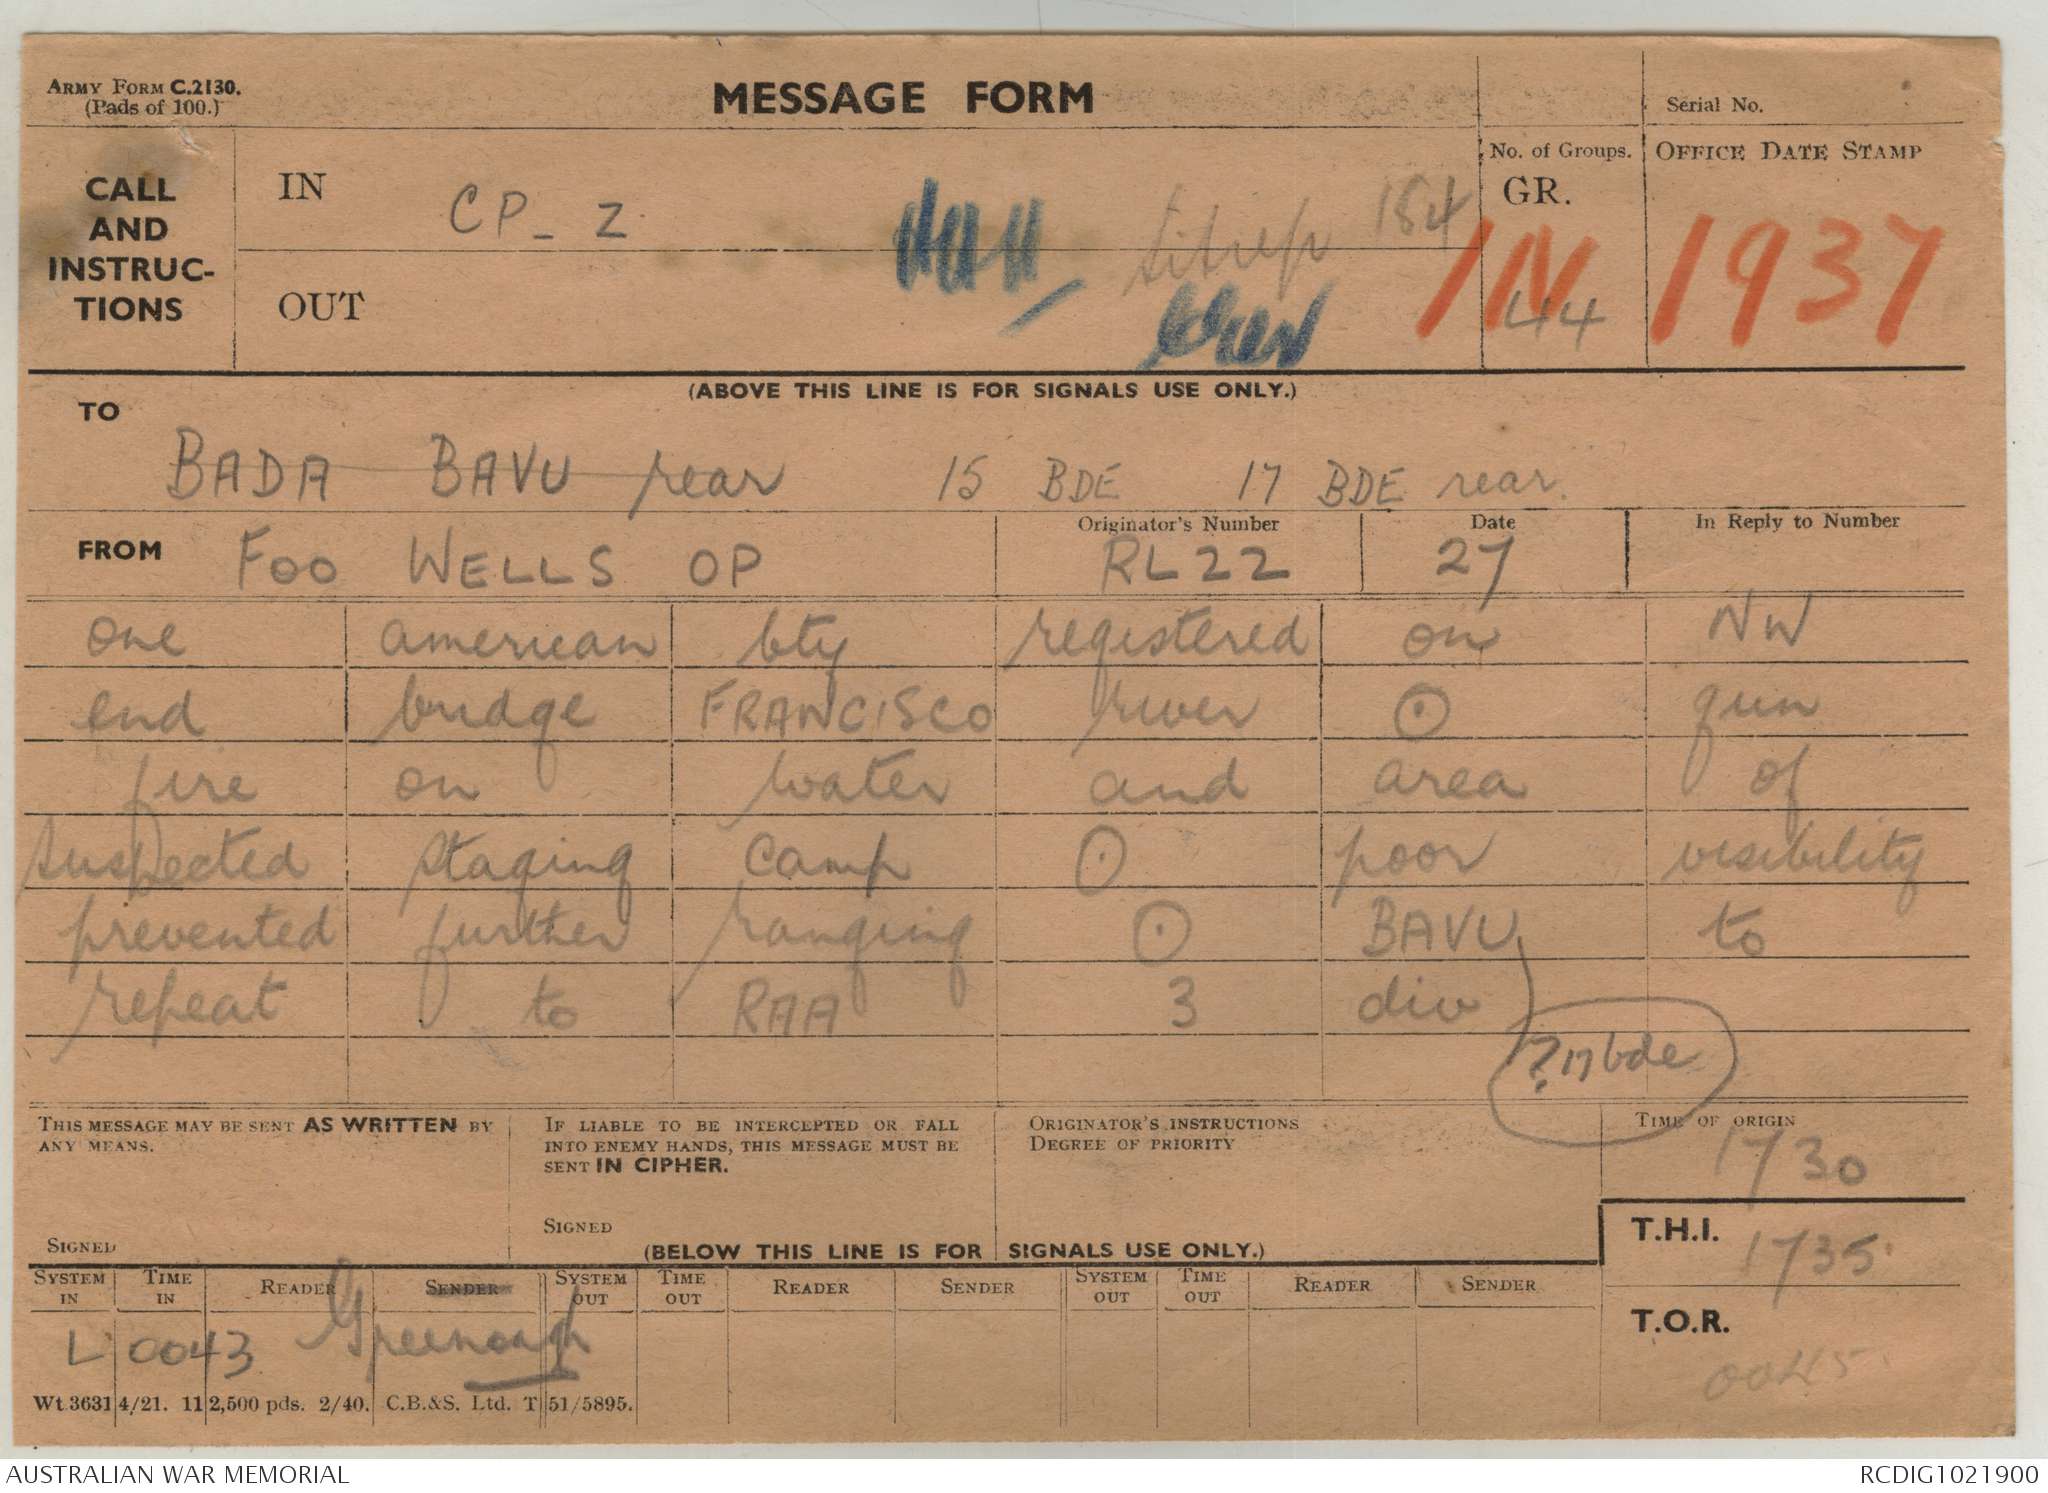 ARMY FORM C.2130.
(Pads of 100.)
MESSAGE FORM
Serial No.
CALL AND INSTRUC-TIONS
IN CP - Z
OUT
Sitrep 184
No. of Groups.
GR.
44
OFFICE DATE STAMP
IN 1937
(ABOVE THIS LINE IS FOR SIGNALS USE ONLY.)
TO
BADA BAVU rear 15 BDE 17 BDE rear.
FROM FOO WELLS OP
Originator's Number
RL22
Date
27
In Reply to Number
one american bty registered on NW
end bridge FRANCISCO river ⊙ gun
fire on water and area of
suspected staging camp ⊙ poor visibility
prevented further ranging ⊙ BAVU to
repeat to RAA 3 div
? 17 bde
THIS MESSAGE MAY BE SENT AS WRITTEN BY
ANY MEANS.
SIGNED
IF LIABLE TO BE INTERCEPTED OR FALL
INTO ENEMY HANDS, THIS MESSAGE MUST BE
SENT IN CIPHER.
SIGNED
ORIGINATOR'S INSTRUCTIONS
DEGREE OF PRIORITY
TIME OF ORIGIN
1730
T.H.I.
1735
T.O.R.
0045
(BELOW THIS LINE IS FOR SIGNALS USE ONLY.)
SYSTEM IN TIME IN READER SENDER SYSTEM OUT TIME OUT READER SENDER SYSTEM OUT TIME OUT READER SENDER
L 0043 Greenough
Wt.3631 4/21. 112,500 pds. 2/40. C.B.&S. Ltd. T 51/5895.
AUSTRALIAN WAR MEMORIAL
RCDIG1021900